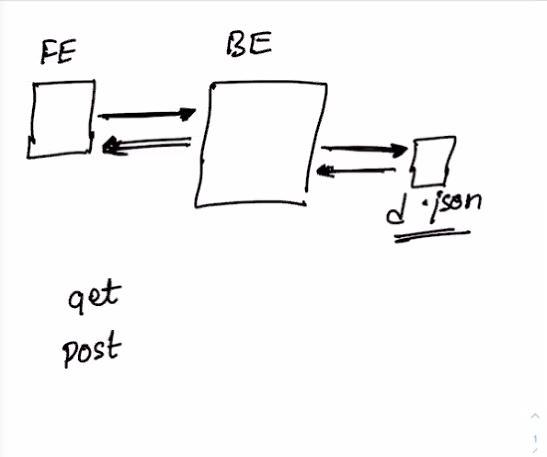 FE
BE
d.json
get
post
1